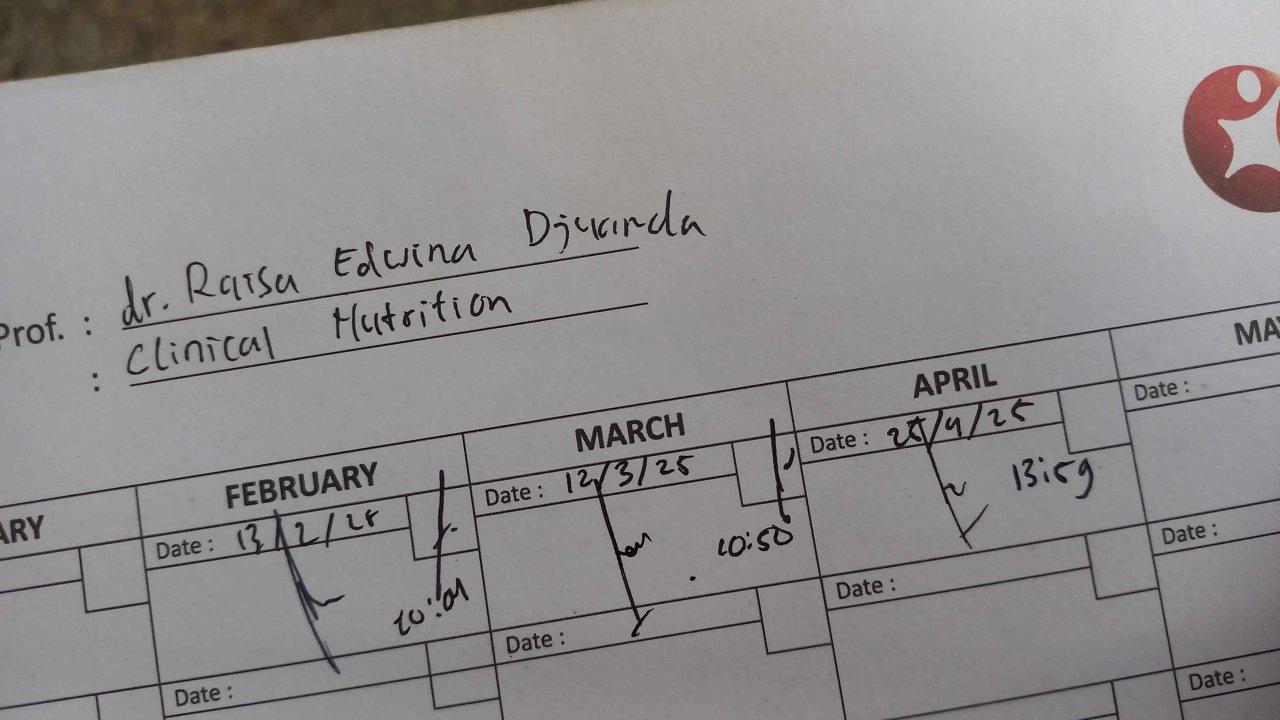 Prof. : dr. Raisa Edwina Djuanda
: Clinical Nutrition
ARY FEBRUARY MARCH APRIL MA
Date : 13/2/25 Date : 12/3/25 Date : 25/4/25 Date :
10:01 10:50 13:59
Date : Date : Date : Date :
Date :